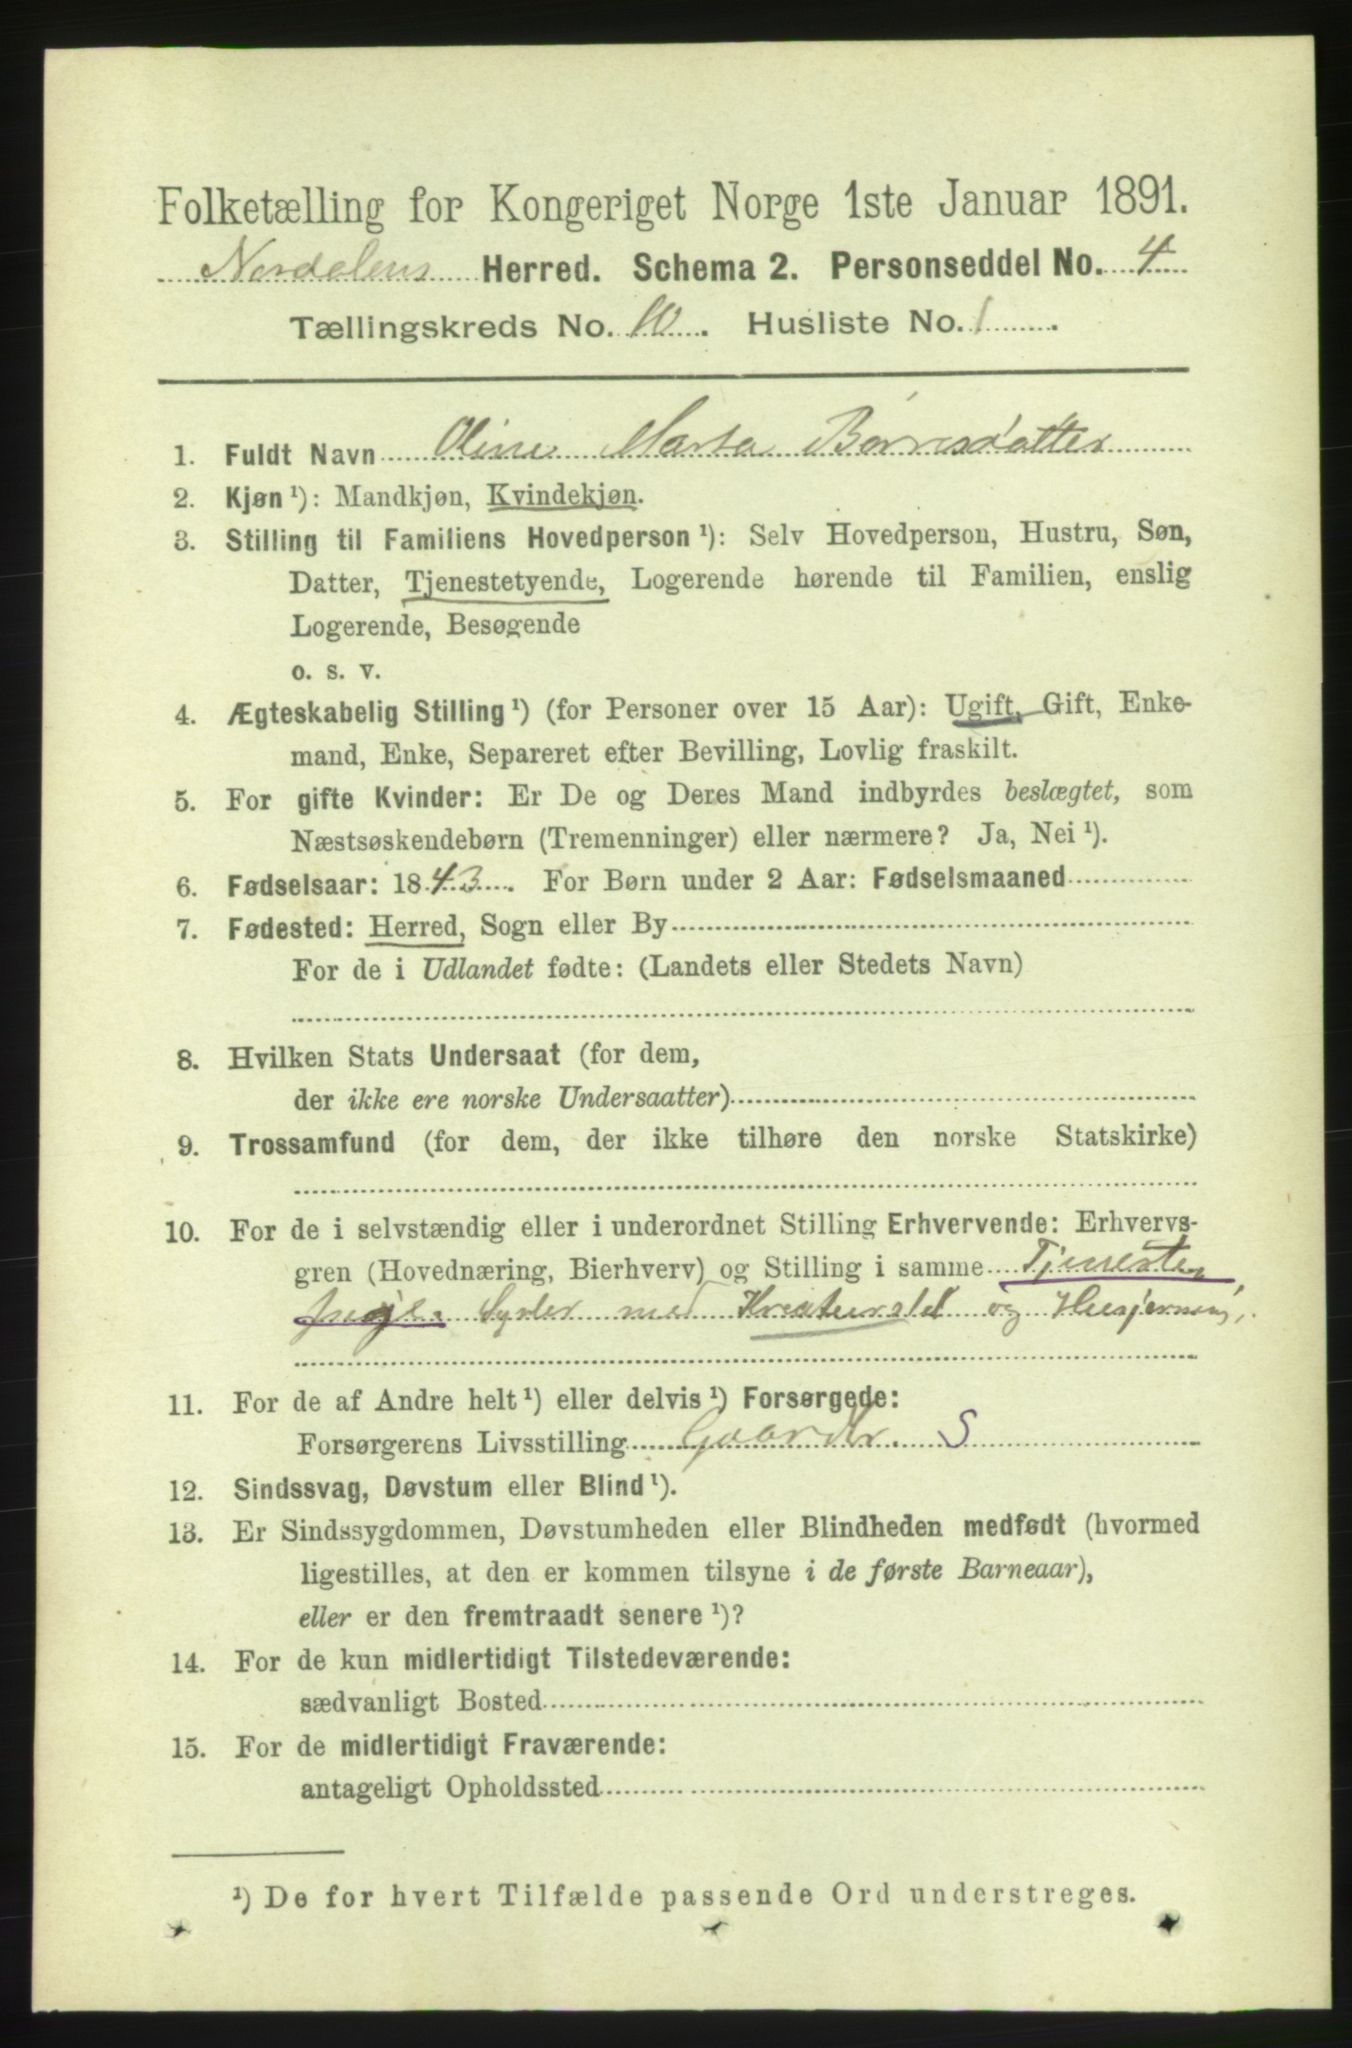 Folketælling for Kongeriget Norge 1ste Januar 1891.
Nordalens Herred. Schema 2. Personseddel No. 4
Tællingskreds No. 10. Husliste No. 1.
1. Fuldt Navn Oline Marta Børresdatter
2. Kjøn ¹): Mandkjøn, Kvindekjøn.
3. Stilling til Familiens Hovedperson ¹): Selv Hovedperson, Hustru, Søn,
Datter, Tjenestetyende, Logerende hørende til Familien, enslig
Logerende, Besøgende
o. s. v.
4. Ægteskabelig Stilling ¹) (for Personer over 15 Aar): Ugift, Gift, Enke-
mand, Enke, Separeret efter Bevilling, Lovlig fraskilt.
5. For gifte Kvinder: Er De og Deres Mand indbyrdes beslægtet, som
Næstsøskendebørn (Tremenninger) eller nærmere? Ja, Nei ¹).
6. Fødselsaar: 1843. For Børn under 2 Aar: Fødselsmaaned
7. Fødested: Herred, Sogn eller By
For de i Udlandet fødte: (Landets eller Stedets Navn)
8. Hvilken Stats Undersaat (for dem,
der ikke ere norske Undersaatter)
9. Trossamfund (for dem, der ikke tilhøre den norske Statskirke)
10. For de i selvstændig eller i underordnet Stilling Erhvervende: Erhvervs-
gren (Hovednæring, Bierhverv) og Stilling i samme Tjeneste
pige. Sysler med Kreaturstel og Husgjerning.
11. For de af Andre helt ¹) eller delvis ¹) Forsørgede:
Forsørgerens Livsstilling Gaardbr. S
12. Sindssvag, Døvstum eller Blind ¹).
13. Er Sindssygdommen, Døvstumheden eller Blindheden medfødt (hvormed
ligestilles, at den er kommen tilsyne i de første Barneaar),
eller er den fremtraadt senere ¹)?
14. For de kun midlertidigt Tilstedeværende:
sædvanligt Bosted
15. For de midlertidigt Fraværende:
antageligt Opholdssted
¹) De for hvert Tilfælde passende Ord understreges.